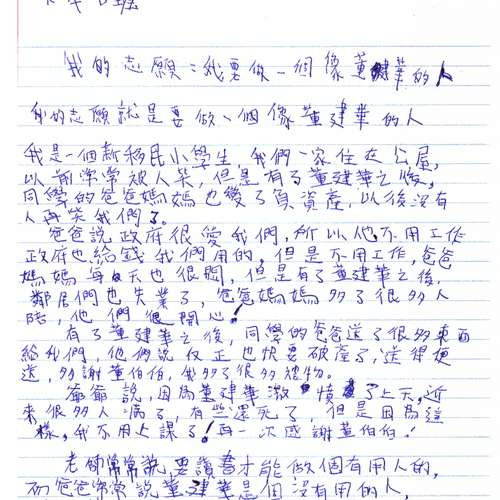 我的志願:我要做一個像董建華的人
我的志願就是要做一個像董建華的人
我是一個新移民小學生,我們一家住在公屋,
以前常常被人笑,但是有了董建華之後,
同學的爸爸媽媽也變了負資產,以後沒有
人再笑我們了。
爸爸說政府很愛我們,所以他不用工作
政府也給錢我們用的,但是不用工作,爸爸
媽媽每天也很悶,但是有了董建華之後,
鄰居們也失業了,爸爸媽媽多了很多人
陪,他們很開心!
有了董建華之後,同學的爸爸送了很多東西
給我們,他們說反正也快要破產了,送得便
送,多謝董伯伯,我多了很多禮物。
爺爺說,因為董建華激憤了上天,近
來很多人病了,有些還死了,但是因為這
樣,我不用上課了!再一次感謝董伯伯!
老師常常說,要讀書才能做個有用的人,
而爸爸常常說董建華是個沒有用的人,